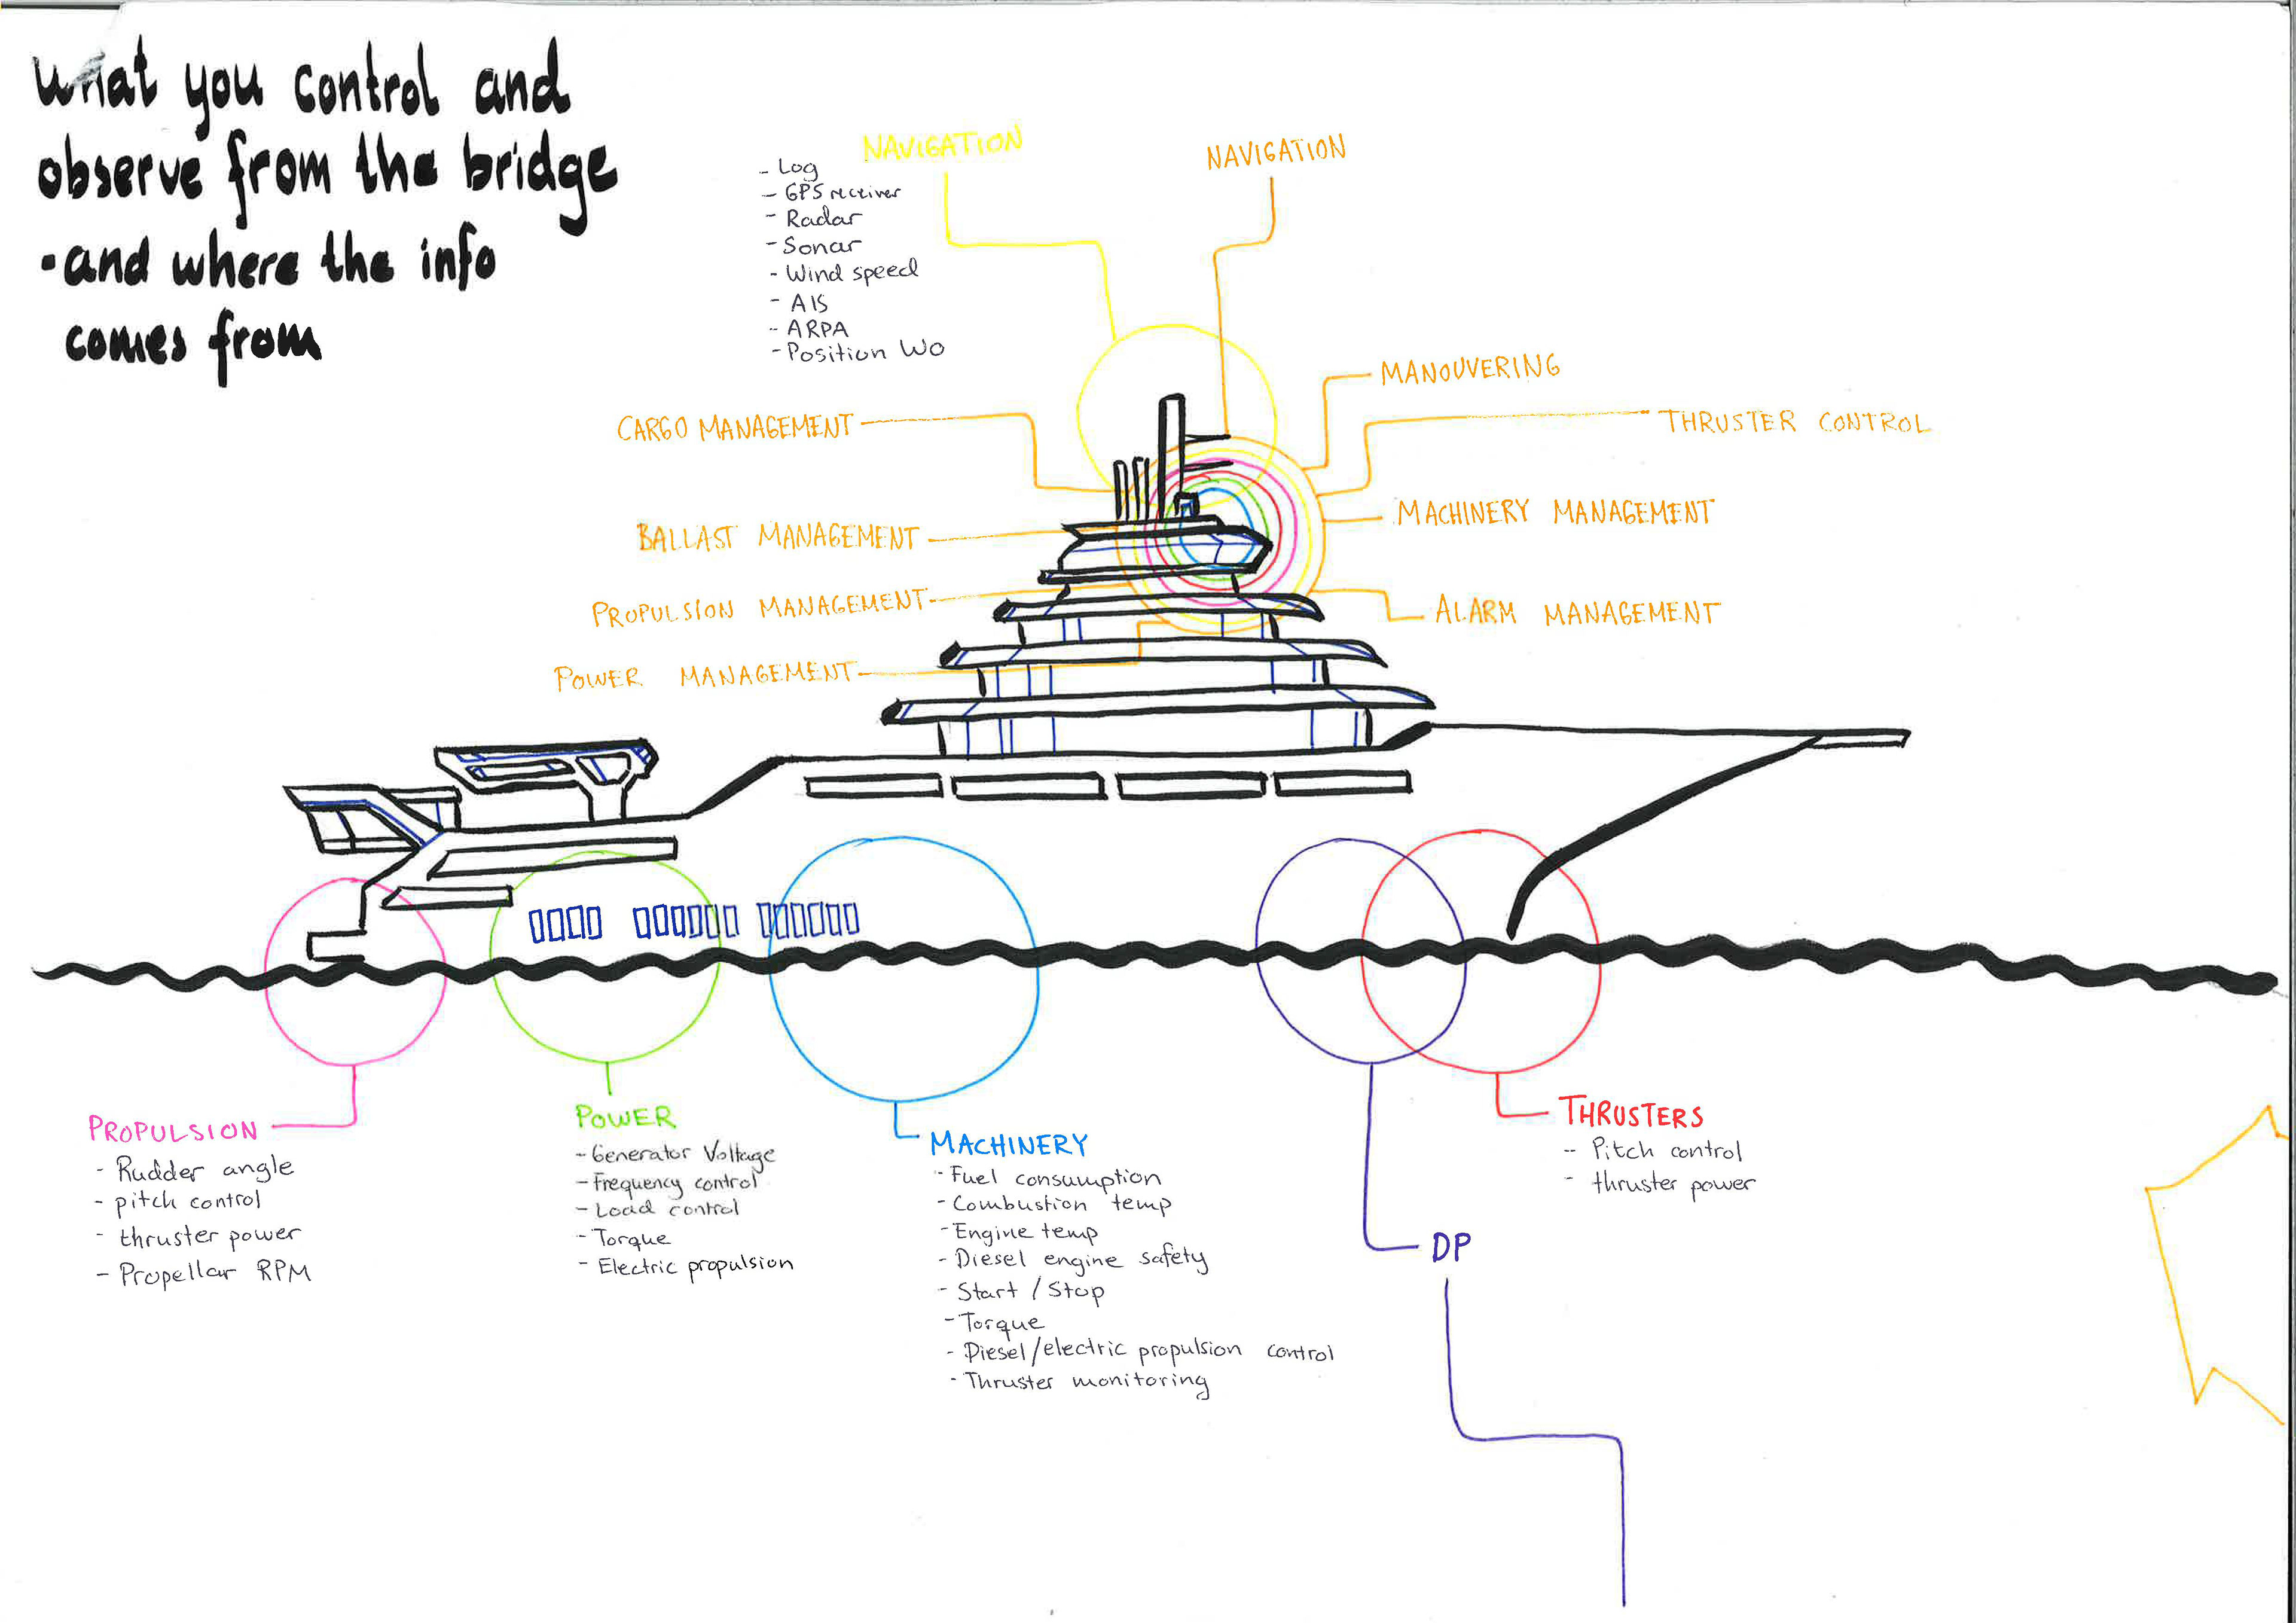 What you control and
observe from the bridge
- and where the info
comes from
NAVIGATION
- Log
- GPS receiver
- Radar
- Sonar
- Wind speed
- AIS
- ARPA
- Position
NAVIGATION
CARGO MANAGEMENT
BALLAST MANAGEMENT
PROPULSION MANAGEMENT
POWER MANAGEMENT
MANOUVERING
THRUSTER CONTROL
MACHINERY MANAGEMENT
ALARM MANAGEMENT
PROPULSION
- Rudder angle
- pitch control
- thruster power
- Propellar RPM
POWER
- Generator Voltage
- Frequency control
- Load control
- Torque
- Electric propulsion
MACHINERY
- Fuel consumption
- Combustion temp
- Engine temp
- Diesel engine safety
- Start / Stop
- Torque
- Diesel/electric propulsion control
- Thruster monitoring
DP
THRUSTERS
- Pitch control
- thruster power